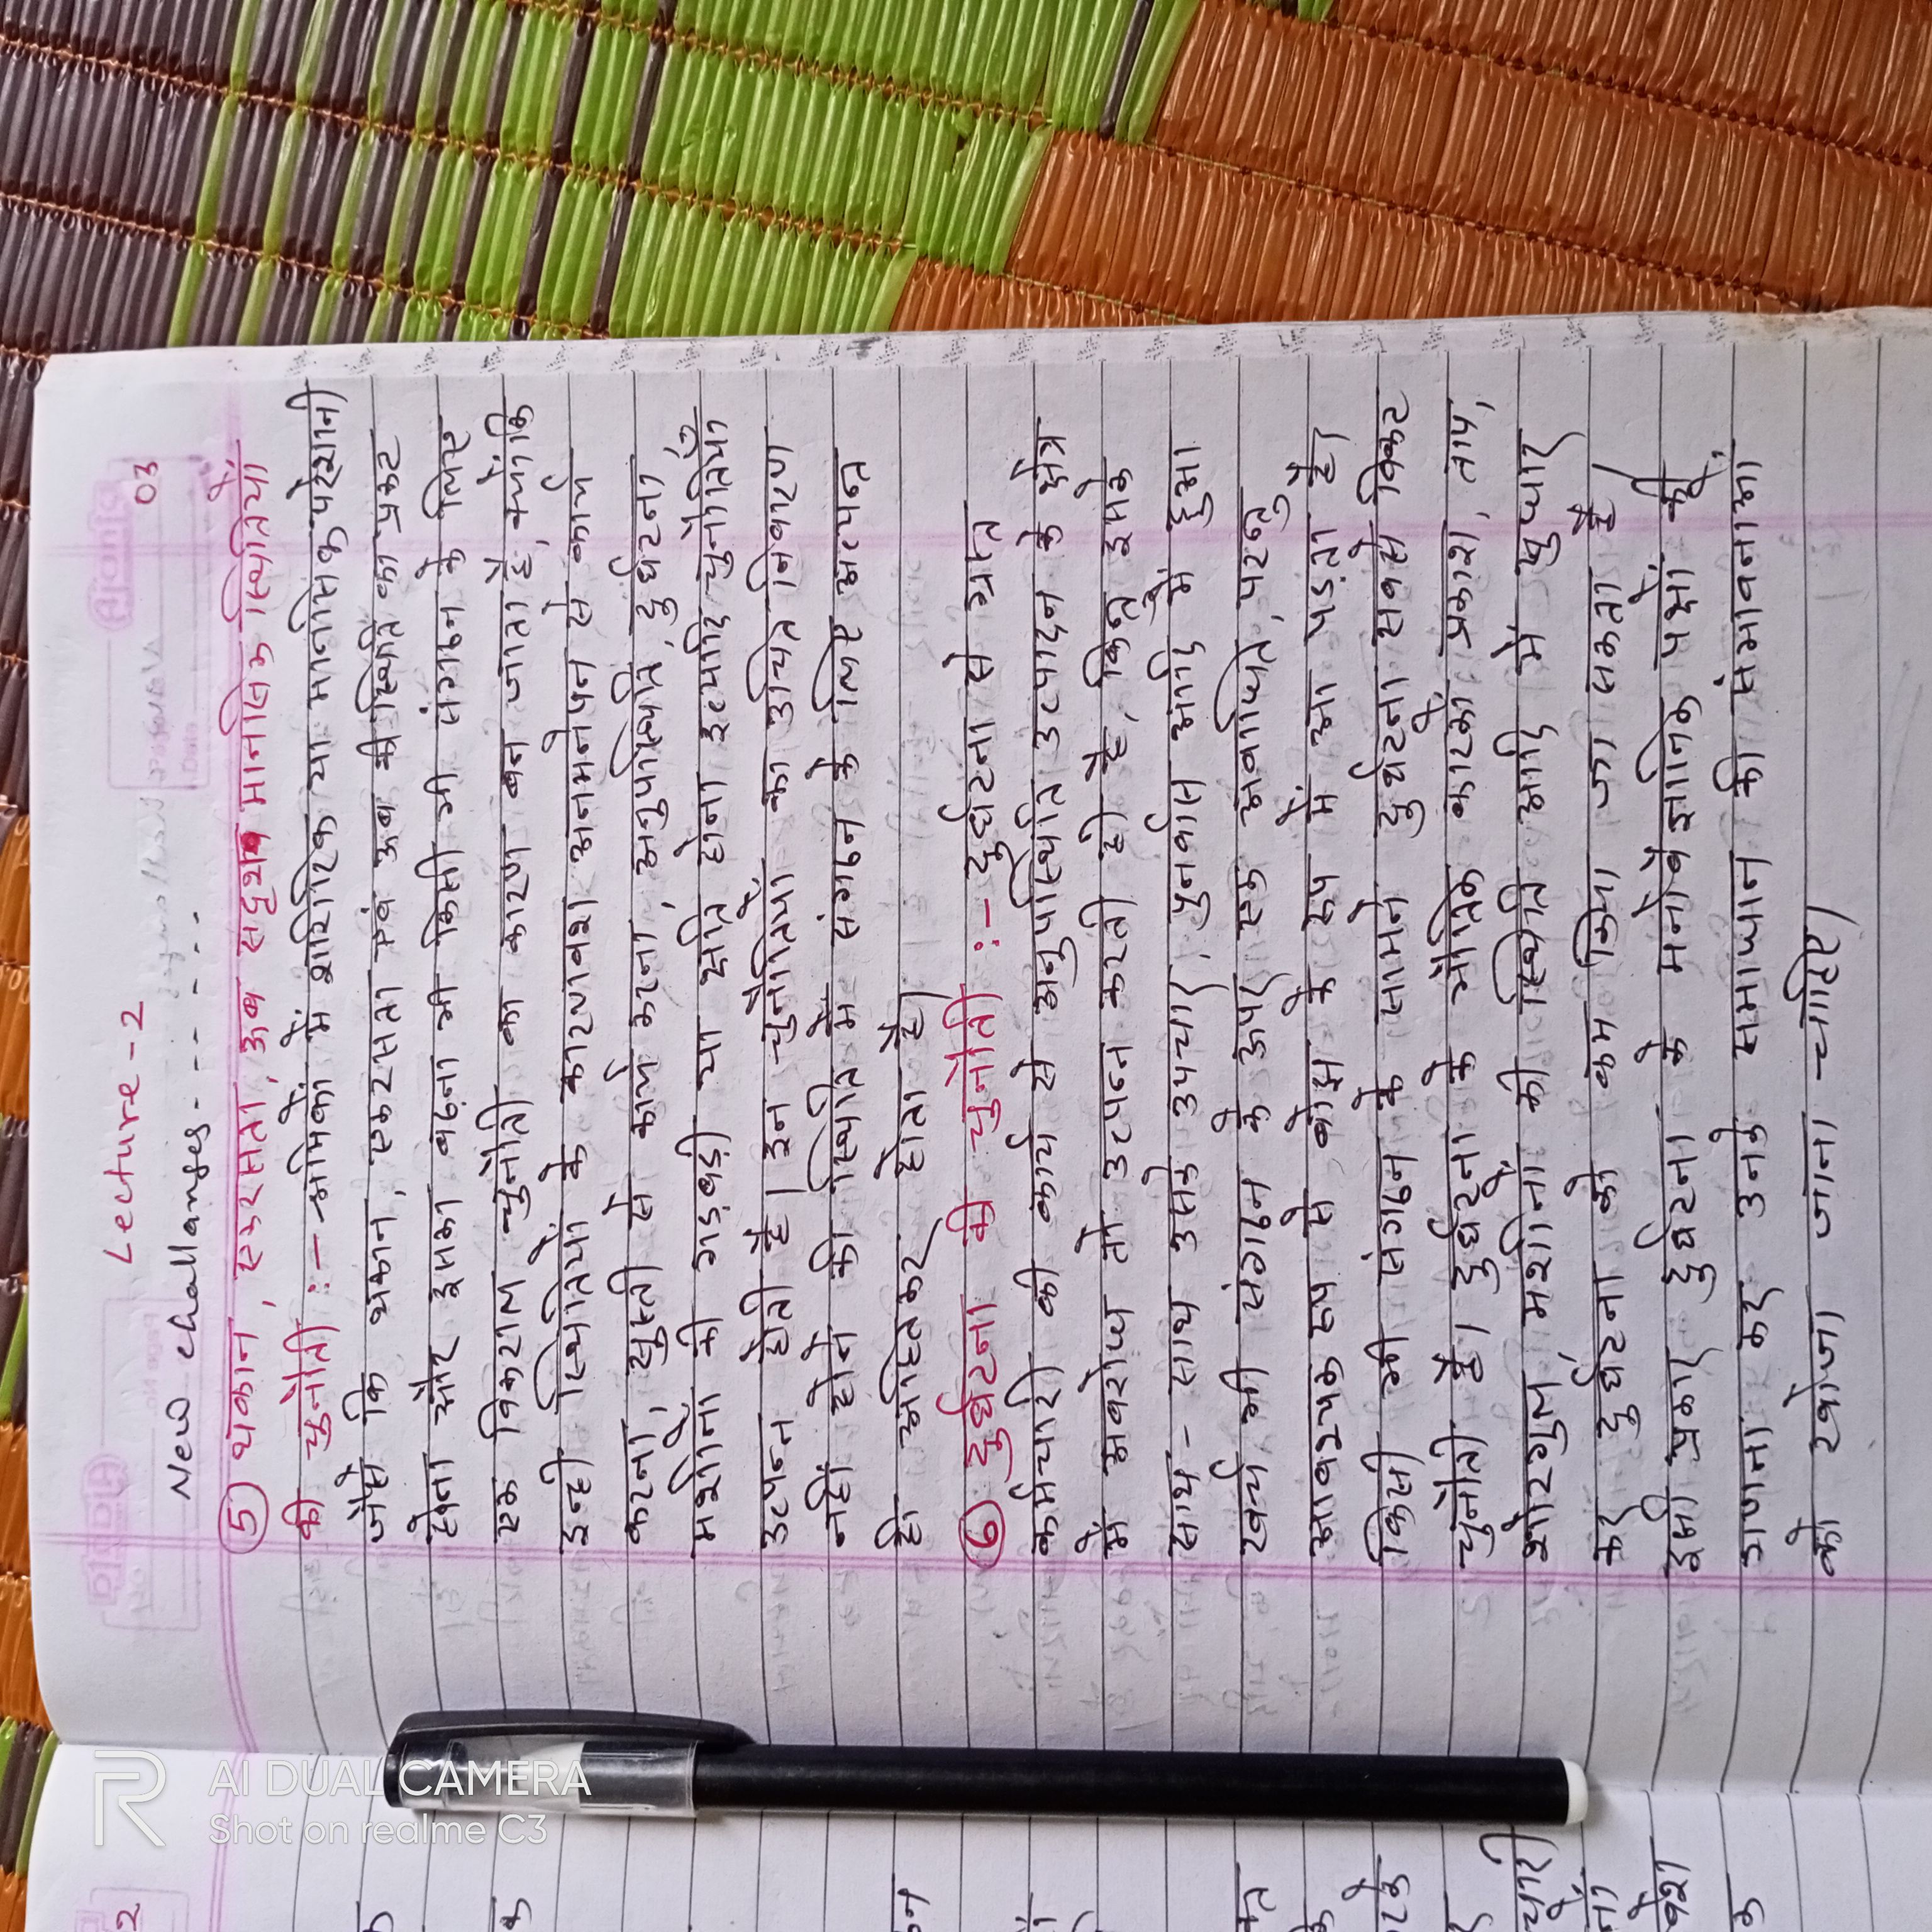 Lecture-2
03
New challanges- -- -- - --
⑤ थकान, एकरसता, ऊब सदृश्य मानसिक स्थितियों
की चुनौती :- श्रमिकों में शारीरिक या मानसिक परेशानी
जैसे कि थकान, एकरसता एवं ऊब की स्थिति का प्रकट
होना और इसका बढ़ना भी किसी भी संगठन के लिए
एक विकराल चुनौती का कारण बन जाता है, क्योंकि
इन्ही स्थितियों के कारणवश अनमनेपन से कार्य
करना, सुस्ती से कार्य करना, अनुपस्थिति, दुर्घटना,
मशीनों की गड़बड़ी या क्षति होना इत्यादि चुनौतियाँ
उत्पन्न होती है। इन चुनौतियों का उचित निवारण
नहीं होने की स्थिति में संगठन के लिए अत्यन्त
ही अहितकर होता है।
⑥ दुर्घटना की चुनौती :- दुर्घटना से ग्रस्त
कर्मचारी की कार्य से अनुपस्थिति उत्पादन के क्षेत्र
में अवरोध तो उत्पन्न करती ही है, किन्तु इसके
साथ - साथ उसके उपचार, पुनर्वास आदि में हुआ
खर्च भी संगठन के ऊपर एक अवांछित, परन्तु
आवश्यक रूप से बोझ के रूप में आ पड़ता है।
किसी भी संगठन के सामने दुर्घटना सबसे विकट
चुनौती है। दुर्घटना के भौतिक कारकों प्रकाश, ताप,
शोरगुल, मशीनों की स्थिति आदि में सुधार
कर दुर्घटना को कम किया जा सकता है
इसी प्रकार दुर्घटना के मनोवैज्ञानिक पक्षों की
गणना कर उनके समाधान की संभावनाओं
को खोजा जाना चाहिए।
AI DUAL CAMERA
Shot on realme C3